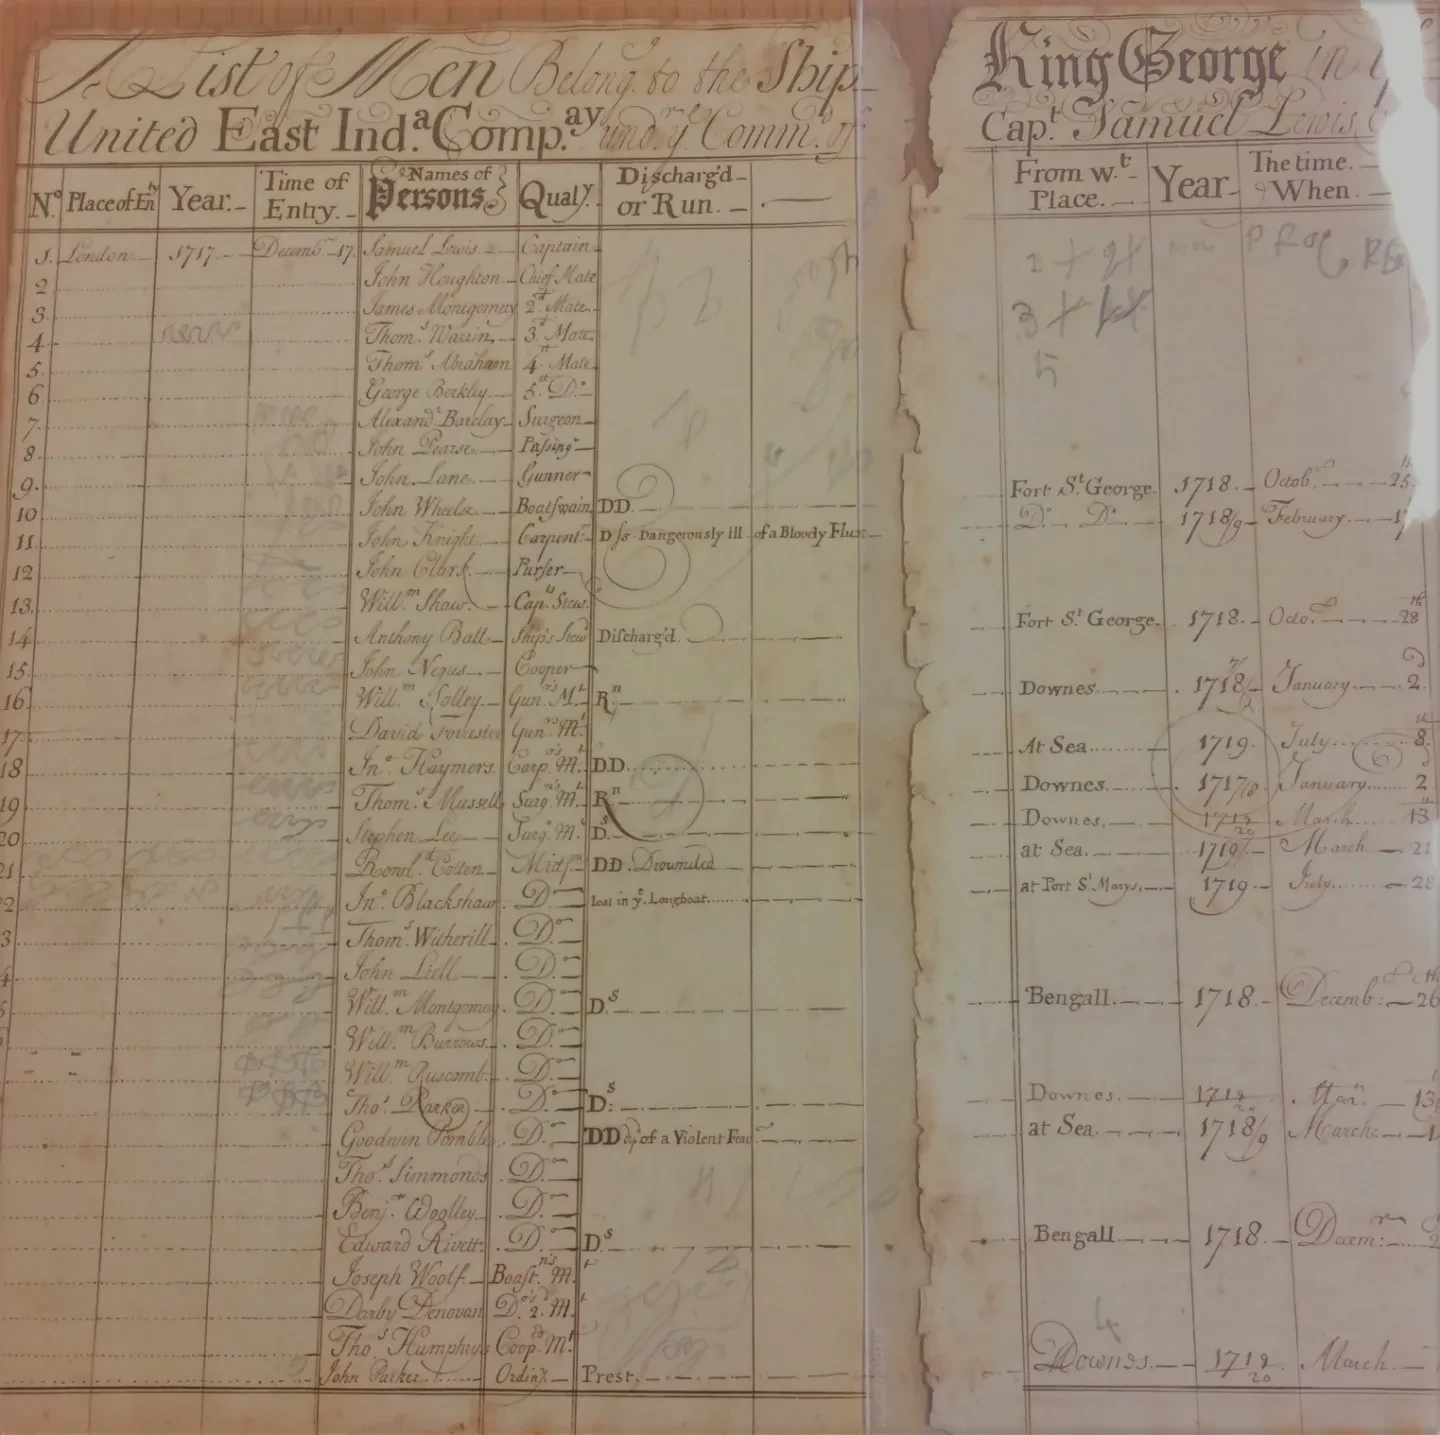 A List of Men Belong. to the Ship King George in ye
United East Ind.a Comp.ay und.r ye Comm. of Capt. Samuel Lewis
No. Place of Enty Year. Time of Entry. Names of Persons. Qualy. Discharg'd or Run. From w.t Place. Year The time. When.
1. London 1717 Decemb. 17. Samuel Lewis Captain
2. John Houghton Chief Mate
3. James Montgomery 2d Mate
4. Thoms. Warrin 3d Mate
5. Thoms. Abraham 4 Mate
6. George Berkley 5 Do.
7. Alexandr. Barclay Surgeon
8. John Pearse Passingr
9. John Lane Gunner
10 John Wheeler Boatswain DD. Fort St. George 1718. Octob. 25
11. John Knight Carpentr Ds. Dangerously ill of a Bloody Flux Do. Do. 1718/9 February
12 John Clark Purser
13. Willm. Shaw Capts Stew.
14 Anthony Ball Ship's Stewd Discharg'd. Fort St. George. 1718. Octo. 28
15. John Negus Cooper
16 Willm. Solley Gunrs. Mt. Rn Downes 1718/ January 2
17. David Forrester Gunrs. Mt.
18 Jno. Haymers Carprs. Mt. DD. At Sea 1719 July 8
19 Thoms. Mussell Surgns. Mt. Rn Downes 1717/18 January 2
20 Stephen Lee Surgs. Mt. Ds. Downes. 1719/20 March 13
21. Rowld. Cotten Midsn DD. Drownded at Sea. 1719/ March 21
2 Jno. Blackshaw Do. lost in ye. Longboat at Port St. Marys. 1719 July 28
3 Thoms. Witherill Do.
4 John Liell Do.
5 Willm. Montgomery Do. Ds Bengall 1718. Decemb: 26
Willm. Burrows Do.
Willm. Ruscomb. Do.
Thos. Parker Do. Ds: Downes. 1719/20 Mar. 13
Goodwin Do. DD dy. of a Violent Feav at Sea. 1718/9 March
Thos. Simmonds Do.
Benjn. Woolley Do.
Edward Rivett Do. Ds Bengall 1718. Decemr:
Joseph Woolf. Boastns. Mt
Darby Denovan Do. 2. Mt
Thos. Humphrys Cooprs. Mt
John Parker Ordiny. Prest. Downes. 1719/20 March